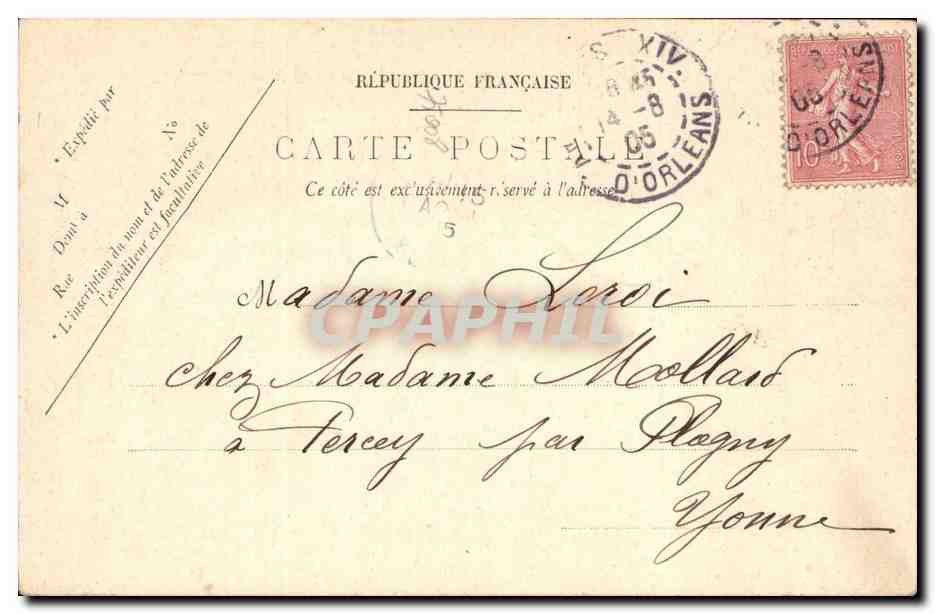 RÉPUBLIQUE FRANÇAISE
CARTE POSTALE
Ce côté est exclusivement réservé à l'adresse
* Expédié par
M
Demt à
Rue
No
* L'inscription du nom et de l'adresse de
l'expéditeur est facultative
XIV
14 -8
05
D'ORLÉANS
10
05
D'ORLEANS
5
CPAPHIL
Madame Leroi
chez Madame Mollard
à Percey par Flogny
Yonne